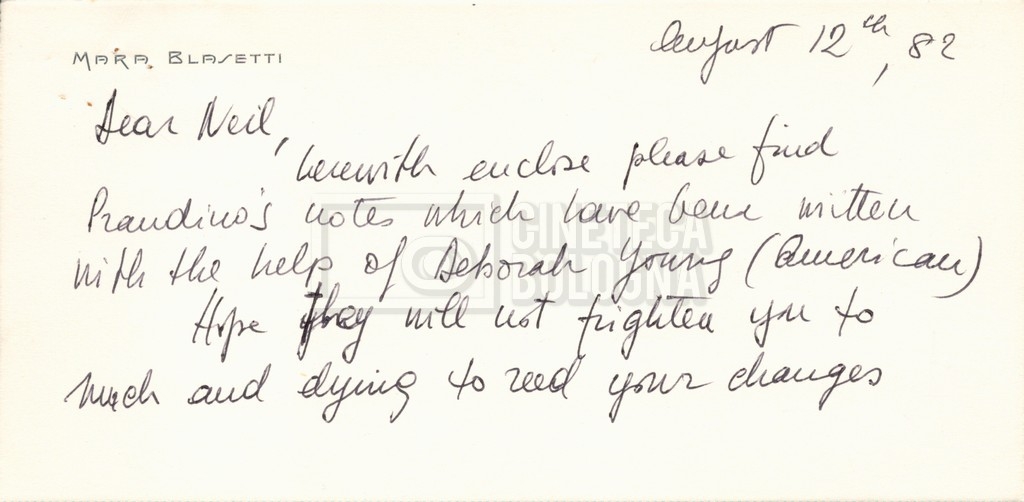 MARA BLASETTI
August 12th, 82
Dear Neil,
herewith enclose please find
Prandino's notes which have been written
with the help of Deborah Young (American)
Hope they will not frighten you to
much and dying to read your changes
CINETECA
BOLOGNA